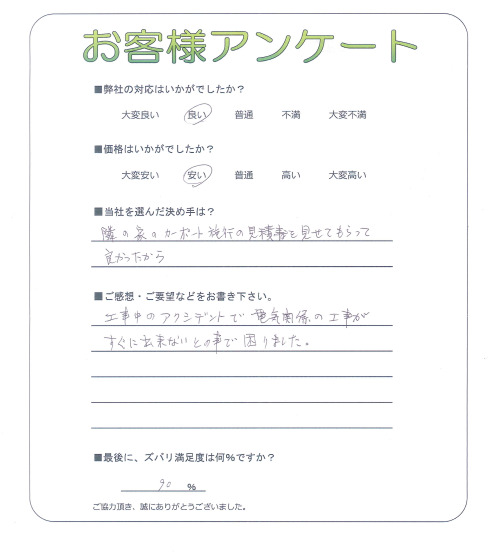 お客様アンケート
■弊社の対応はいかがでしたか？
大変良い 良い 普通 不満 大変不満
■価格はいかがでしたか？
大変安い 安い 普通 高い 大変高い
■当社を選んだ決め手は？
隣の家のカーポート施行の見積書を見せてもらって
良かったから
■ご感想・ご要望などをお書き下さい。
工事中のアクシデントで電気関係の工事が
すぐに出来ないとの事で困りました。
■最後に、ズバリ満足度は何%ですか？
90 %
ご協力頂き、誠にありがとうございました。